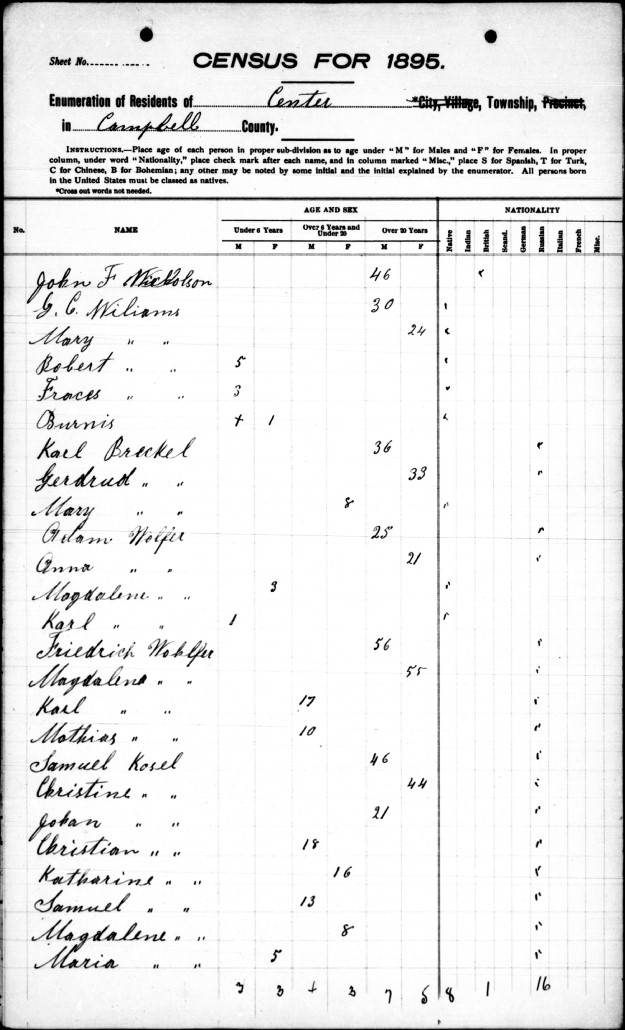 Sheet No.
CENSUS FOR 1895.
Enumeration of Residents of Center *City, Village, Township, Precinct,
in Campbell County.
INSTRUCTIONS.—Place age of each person in proper sub-division as to age under "M" for Males and "F" for Females. In proper
column, under word "Nationality," place check mark after each name, and in column marked "Misc.," place S for Spanish, T for Turk,
C for Chinese, B for Bohemian; any other may be noted by some initial and the initial explained by the enumerator. All persons born
in the United States must be classed as natives.
*Cross out words not needed.
AGE AND SEX NATIONALITY
No. NAME Under 6 Years Over 6 Years and Under 20 Over 20 Years Native Indian British Scand. German Russian Italian French Misc.
M F M F M F
John F Nickolson 46 ✓
G. C. Williams 30 ✓
Mary " " 24 ✓
Robert " " 5 ✓
Fraces " " 3 ✓
Burnis + 1 ✓
Karl Breckel 36 ✓
Gerdrud " " 33 ✓
Mary " " 8 ✓
Adam Wolfer 25 ✓
Anna " " 21 ✓
Magdalene " " 3 ✓
Karl " " 1 ✓
Friedrich Wohlfer 56 ✓
Magdalena " " 55 ✓
Karl " " 17 ✓
Mathias " " 10 ✓
Samuel Kosel 46 ✓
Christine " " 44 ✓
Johan " " 21 ✓
Christian " " 18 ✓
Katharine " " 16 ✓
Samuel " " 13 ✓
Magdalene " " 8 ✓
Maria " " 5 ✓
3 3 4 3 7 5 8 1 16